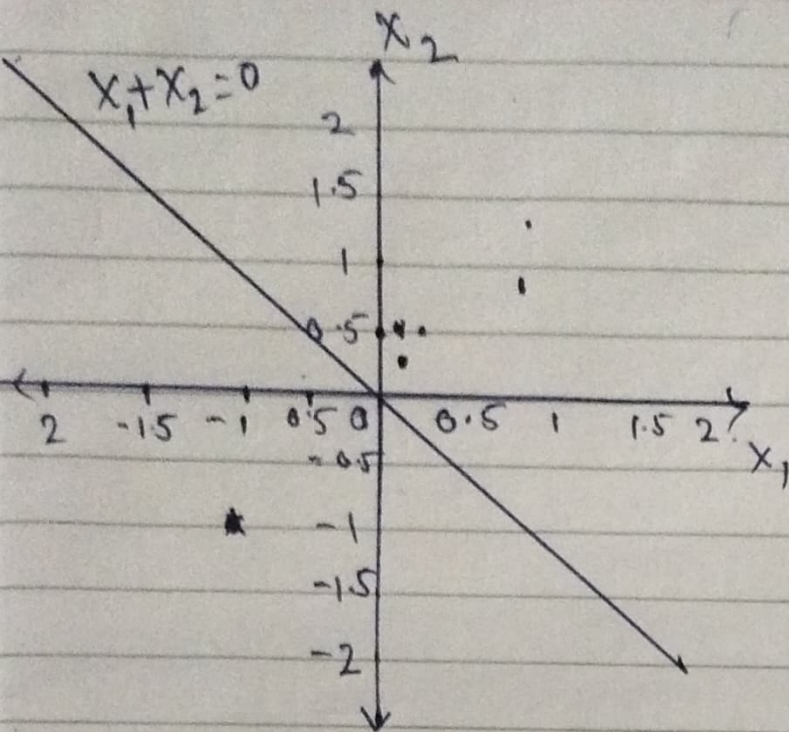 X₂
X₁+X₂=0
2
1.5
1
0.5
2 -15 -1 0.5 0 0.5 1 1.5 2
X₁
-0.5
-1
-1.5
-2